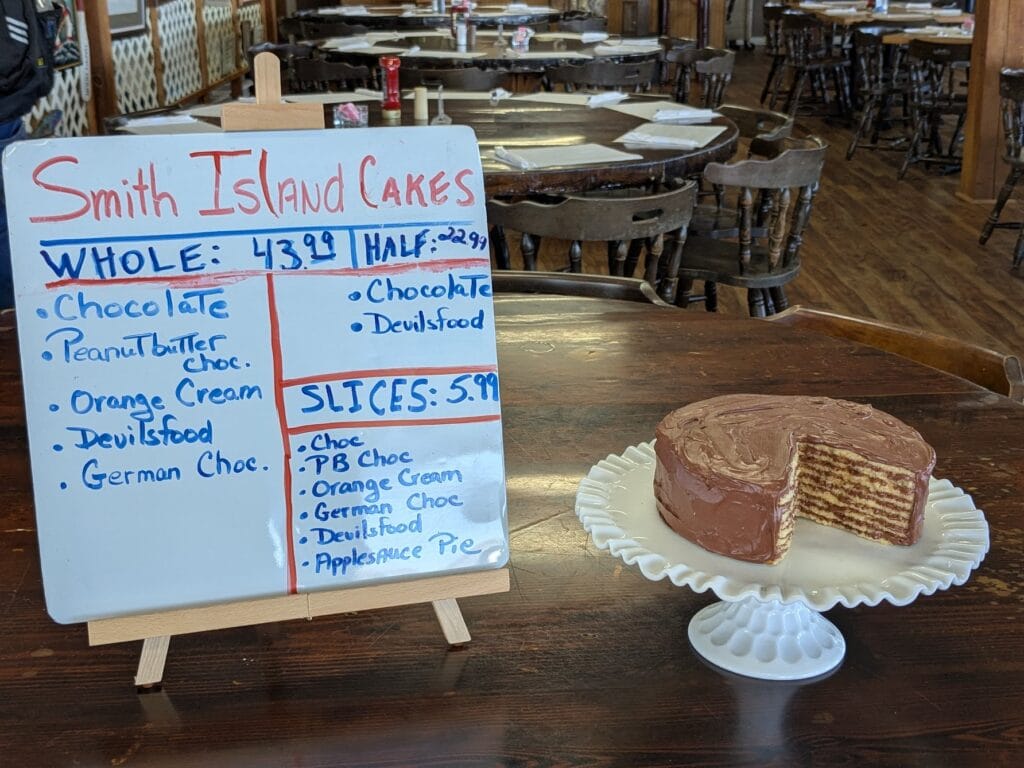 Smith Island Cakes
WHOLE: 43.99
HALF: 22.99
• Chocolate
• Peanutbutter
choc.
• Orange Cream
• Devilsfood
• German Choc.
• Chocolate
• Devilsfood
SLICES: 5.99
• Choc
• PB Choc
• Orange Cream
• German Choc
• Devilsfood
• Applesauce Pie